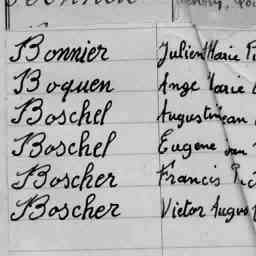 Bonnier Julien Marie
Boquen Ange Marie
Boschel Augustin Jean
Boschel Eugene Jean
Boscher Francis
Boscher Victor August